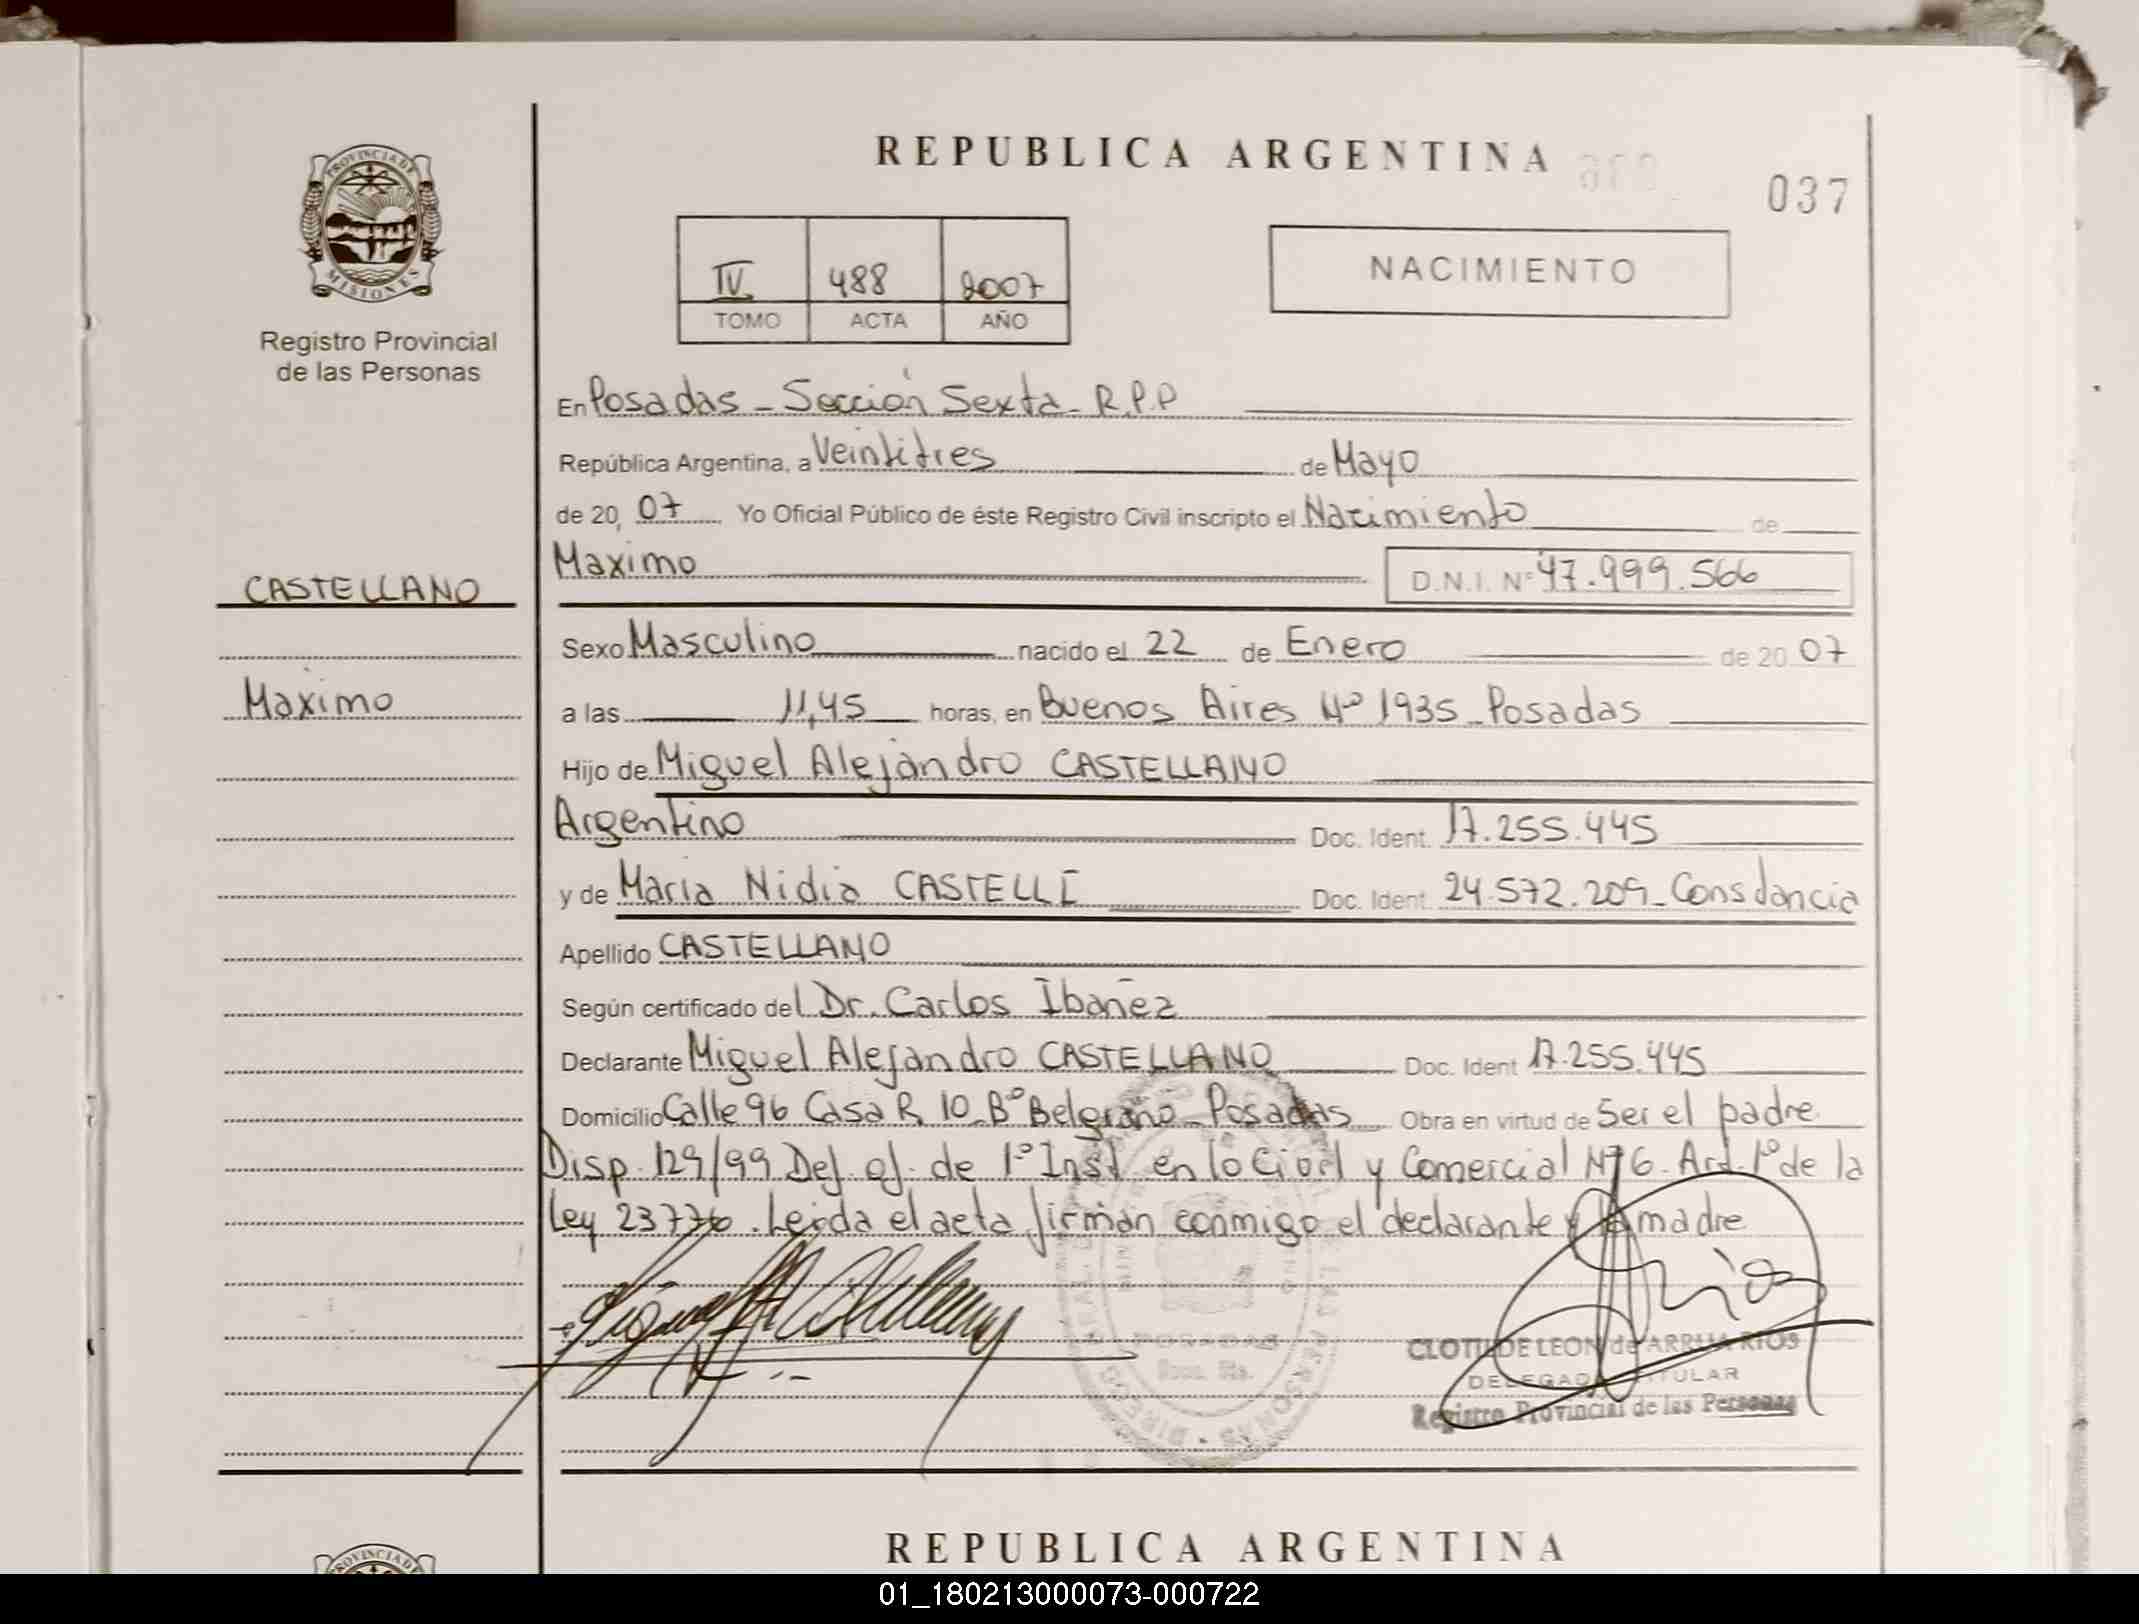 REPUBLICA ARGENTINA
037
PROVINCIA DE
MISIONES
Registro Provincial
de las Personas
IV 488 2007
TOMO ACTA AÑO
NACIMIENTO
En Posadas - Sección Sexta - R.P.P
República Argentina, a Veintitres de Mayo
de 20, 07 Yo Oficial Público de éste Registro Civil inscripto el Nacimiento de
Maximo D.N.I. Nº 47.999.566
CASTELLANO
Sexo Masculino nacido el 22 de Enero de 20 07
Maximo
a las 11,45 horas, en Buenos Aires Nº 1935 - Posadas
Hijo de Miguel Alejandro CASTELLANO
Argentino Doc. Ident. 17.255.445
y de Maria Nidia CASTELLI Doc. Ident. 24.572.209 - Constancia
Apellido CASTELLANO
Según certificado del Dr. Carlos Ibañez
Declarante Miguel Alejandro CASTELLANO Doc. Ident 17.255.445
Domicilio Calle 96 Casa R 10 - Bº Belgrano - Posadas Obra en virtud de Ser el padre
Disp. 129/99 Def. of. de 1º Inst. en lo Civil y Comercial Nº 6. Art. 1º de la
Ley 23776. Leida el acta firman conmigo el declarante y la madre
POSADAS
CLOTILDE LEON de ARRUA RIOS
DELEGADA TITULAR
Registro Provincial de las Personas
REPUBLICA ARGENTINA
PROVINCIA DE
01_180213000073-000722